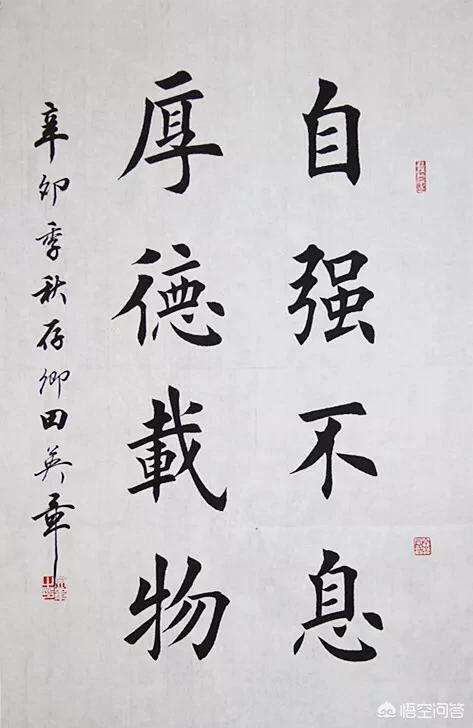 自强不息
厚德載物
辛卯季秋存卿田英章
悟空问答